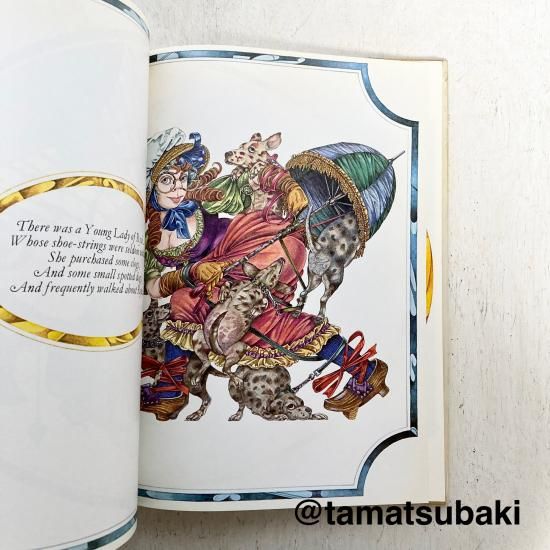 There was a Young Lady of
Whose shoe-strings were seldom
She purchased some clogs,
And some small spotted
And frequently walked about
@tamatsubaki